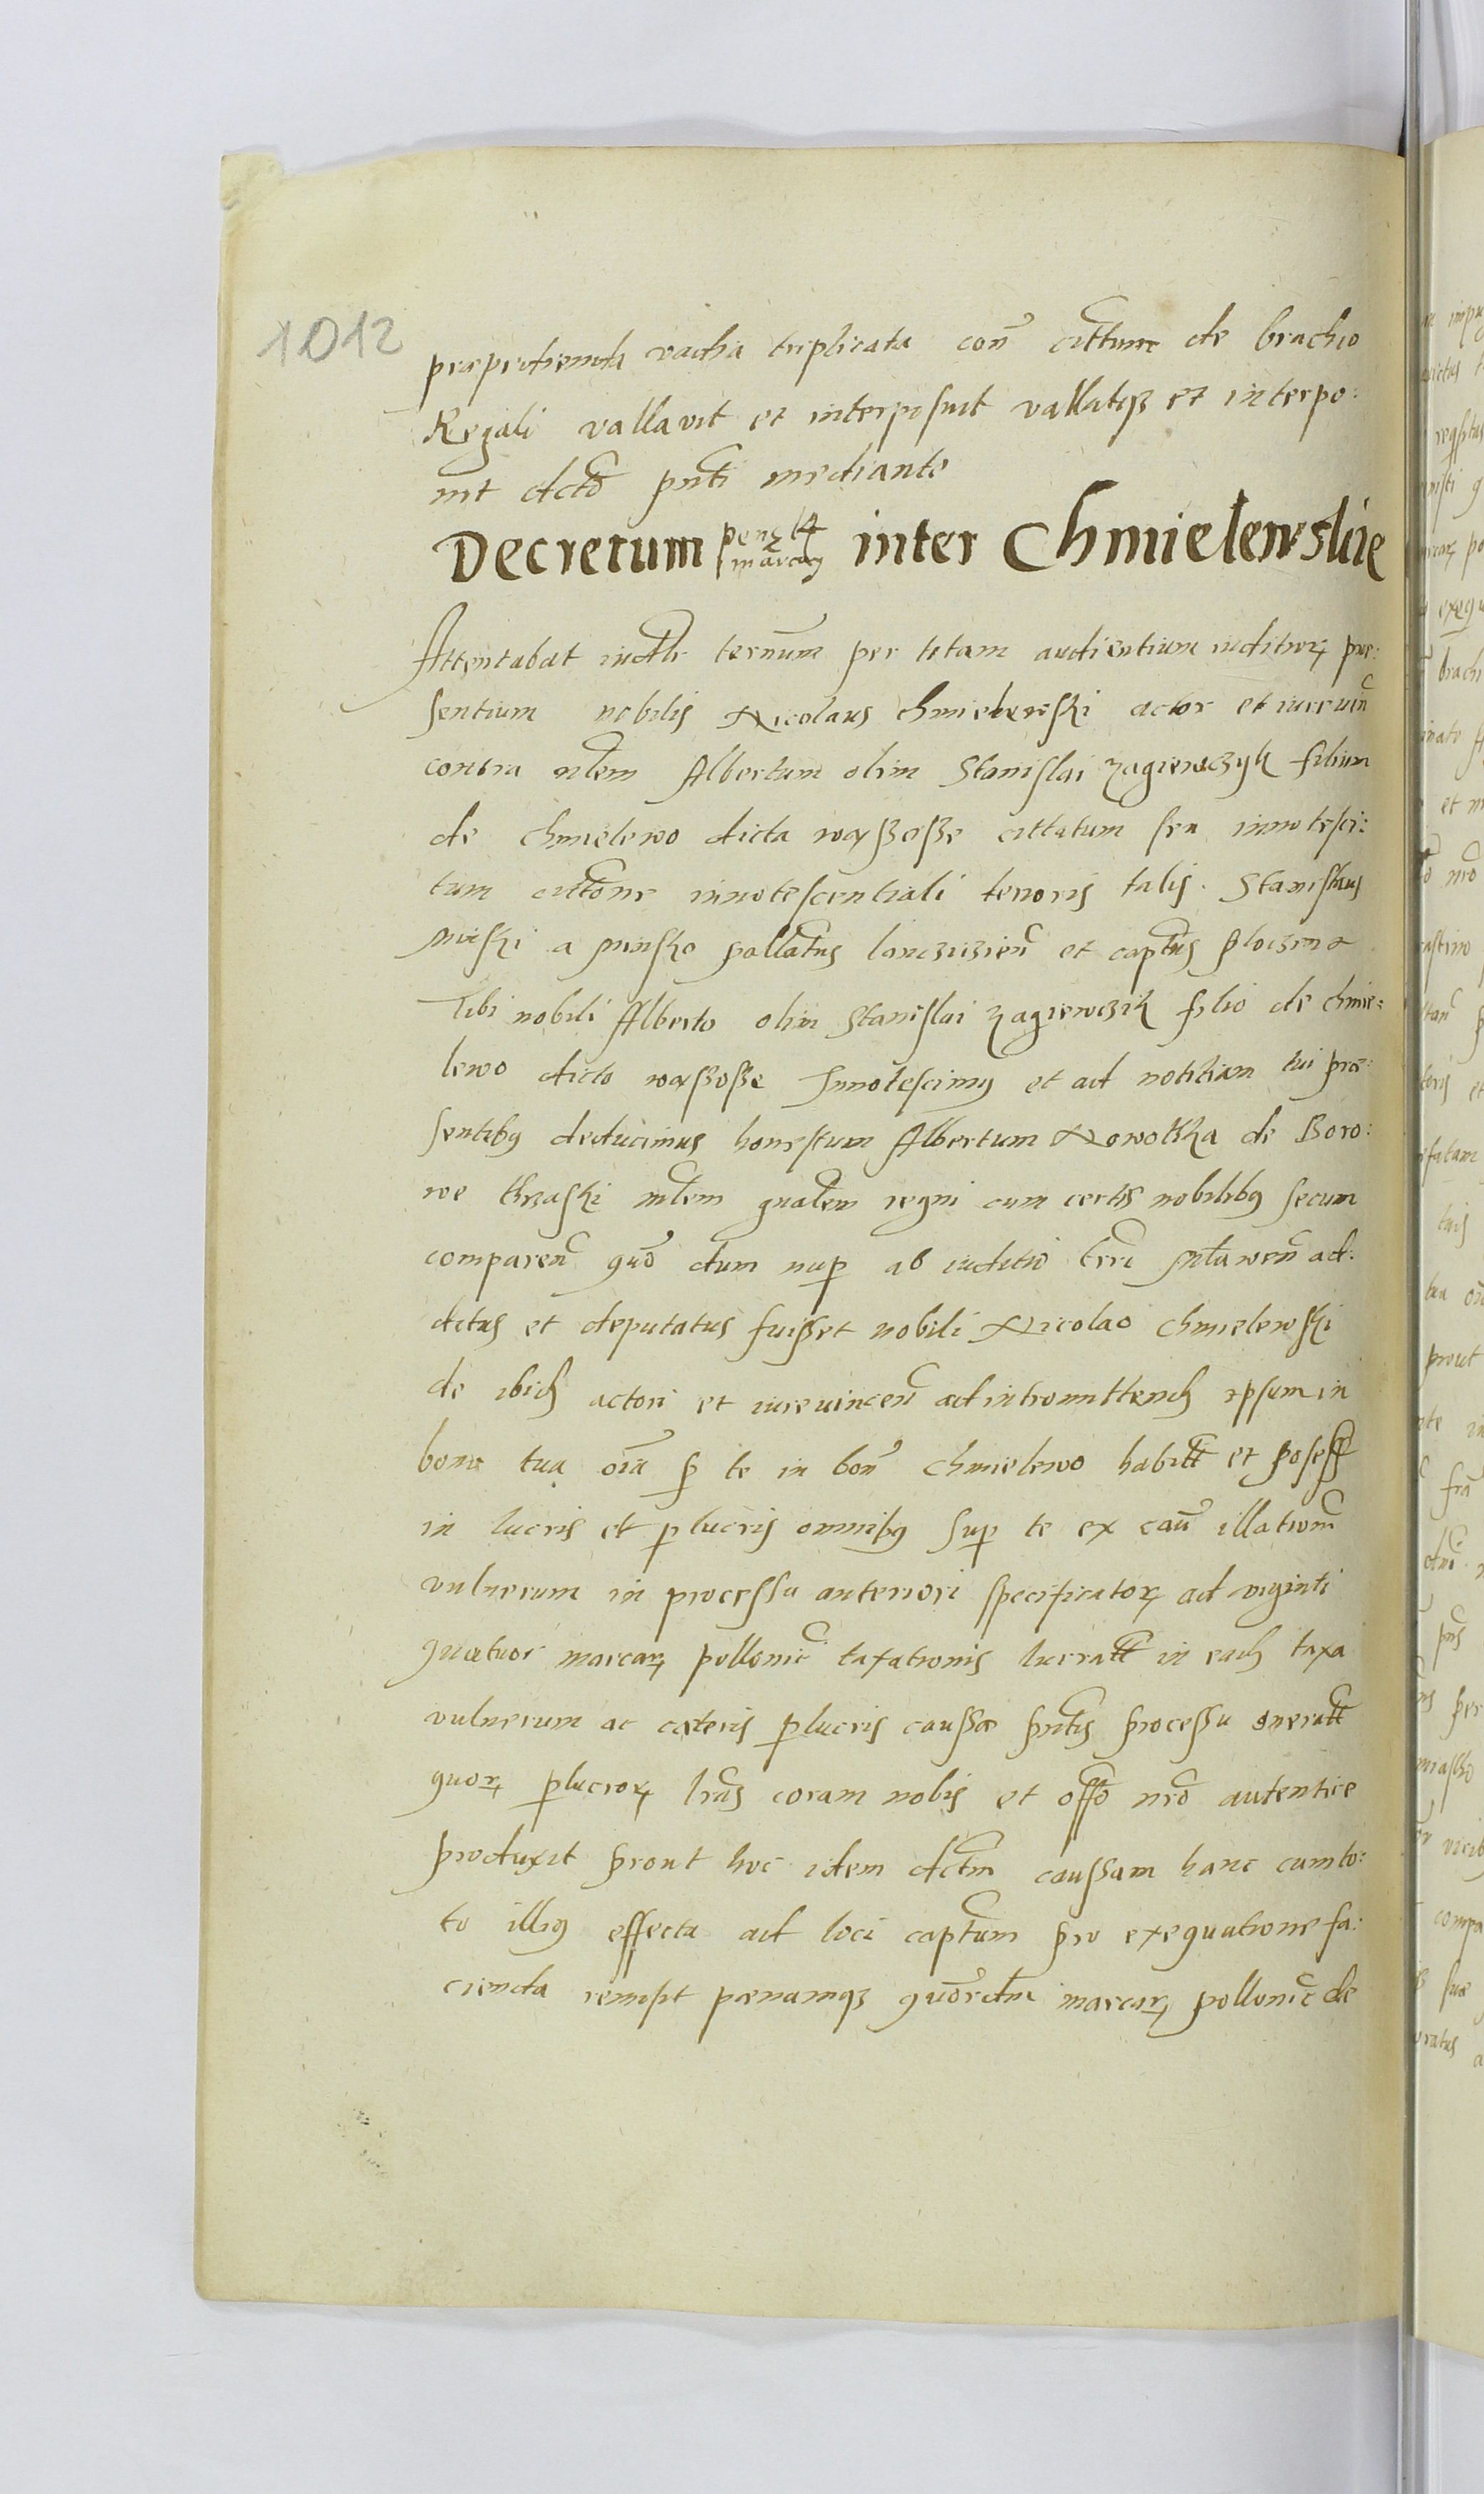 1012
præpedienda vadia triplicata con cittum de brachio
Regali vallavit et interposuit vallatqꝫ et interpo:
nit dcto pnti mediante
Decretum penæ 14 marcaꝝ inter Chmielewskie
Attentabat iudtr ternum per totam audientium iuditioꝝ præ:
sentium nobilis Nicolaus Chmielewski actor et iureuin
contra nlem Albertum olim Stanislai Zagiewczyk filium
de Chmielewo dicta waßoße cittatum seu innotesci:
tum cittone innotescentiali tenoris talis. Stanislaus
Minski a Minsko pallatus lanczizien et captus plocensis
Tibi nobili Alberto olim Stanislai Zagiewczik filio de Chmie:
lewo dicto waßoße Innotescimus et ad notitiam tui præ:
sentibus deducimus honestum Albertum Nowotka de Boro:
we thrzaski mlem gnalem regni cum certis nobilibus secum
comparen quo dum nup ab iuditio terri Mlawen ad:
ditus et deputatus fuisset nobili Nicolao Chmielewski
de ibid actori et iureuincen ad intromittend ipsum in
bona tua oia p te in bon Chmielewo habitt et possess
in lucris et plucris omnibus sup te ex cau illationu
vulnerum in processu anteriori specificatoꝝ ad viginti
quatuor marcaꝝ pollonic taxationis lucratt in ead taxa
vulnerum ac cæteris plucris caussæ pntis processu oneratt
quoꝝ plucroꝝ lras coram nobis et offo nro autentice
produxit prout hoc idem dctm caussam hanc cum to:
to illius effectu ad loci captum pro exequutione fa:
cienda remisit pœnamqꝫ quordm marcaꝝ pollonic de